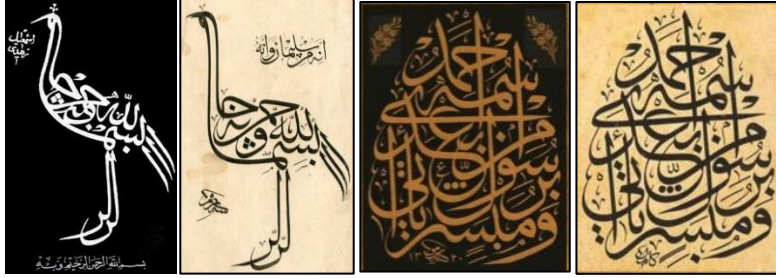 اسمعيل
زهدي
بسم الله الرحمن الرحيم
بسم الله الرحمن الرحيم وبه
انه من سليمان وانه
بسم الله الرحمن الرحيم
ومبشرا برسول يأتي من بعدي اسمه احمد
ومبشرا برسول يأتي من بعدي اسمه احمد